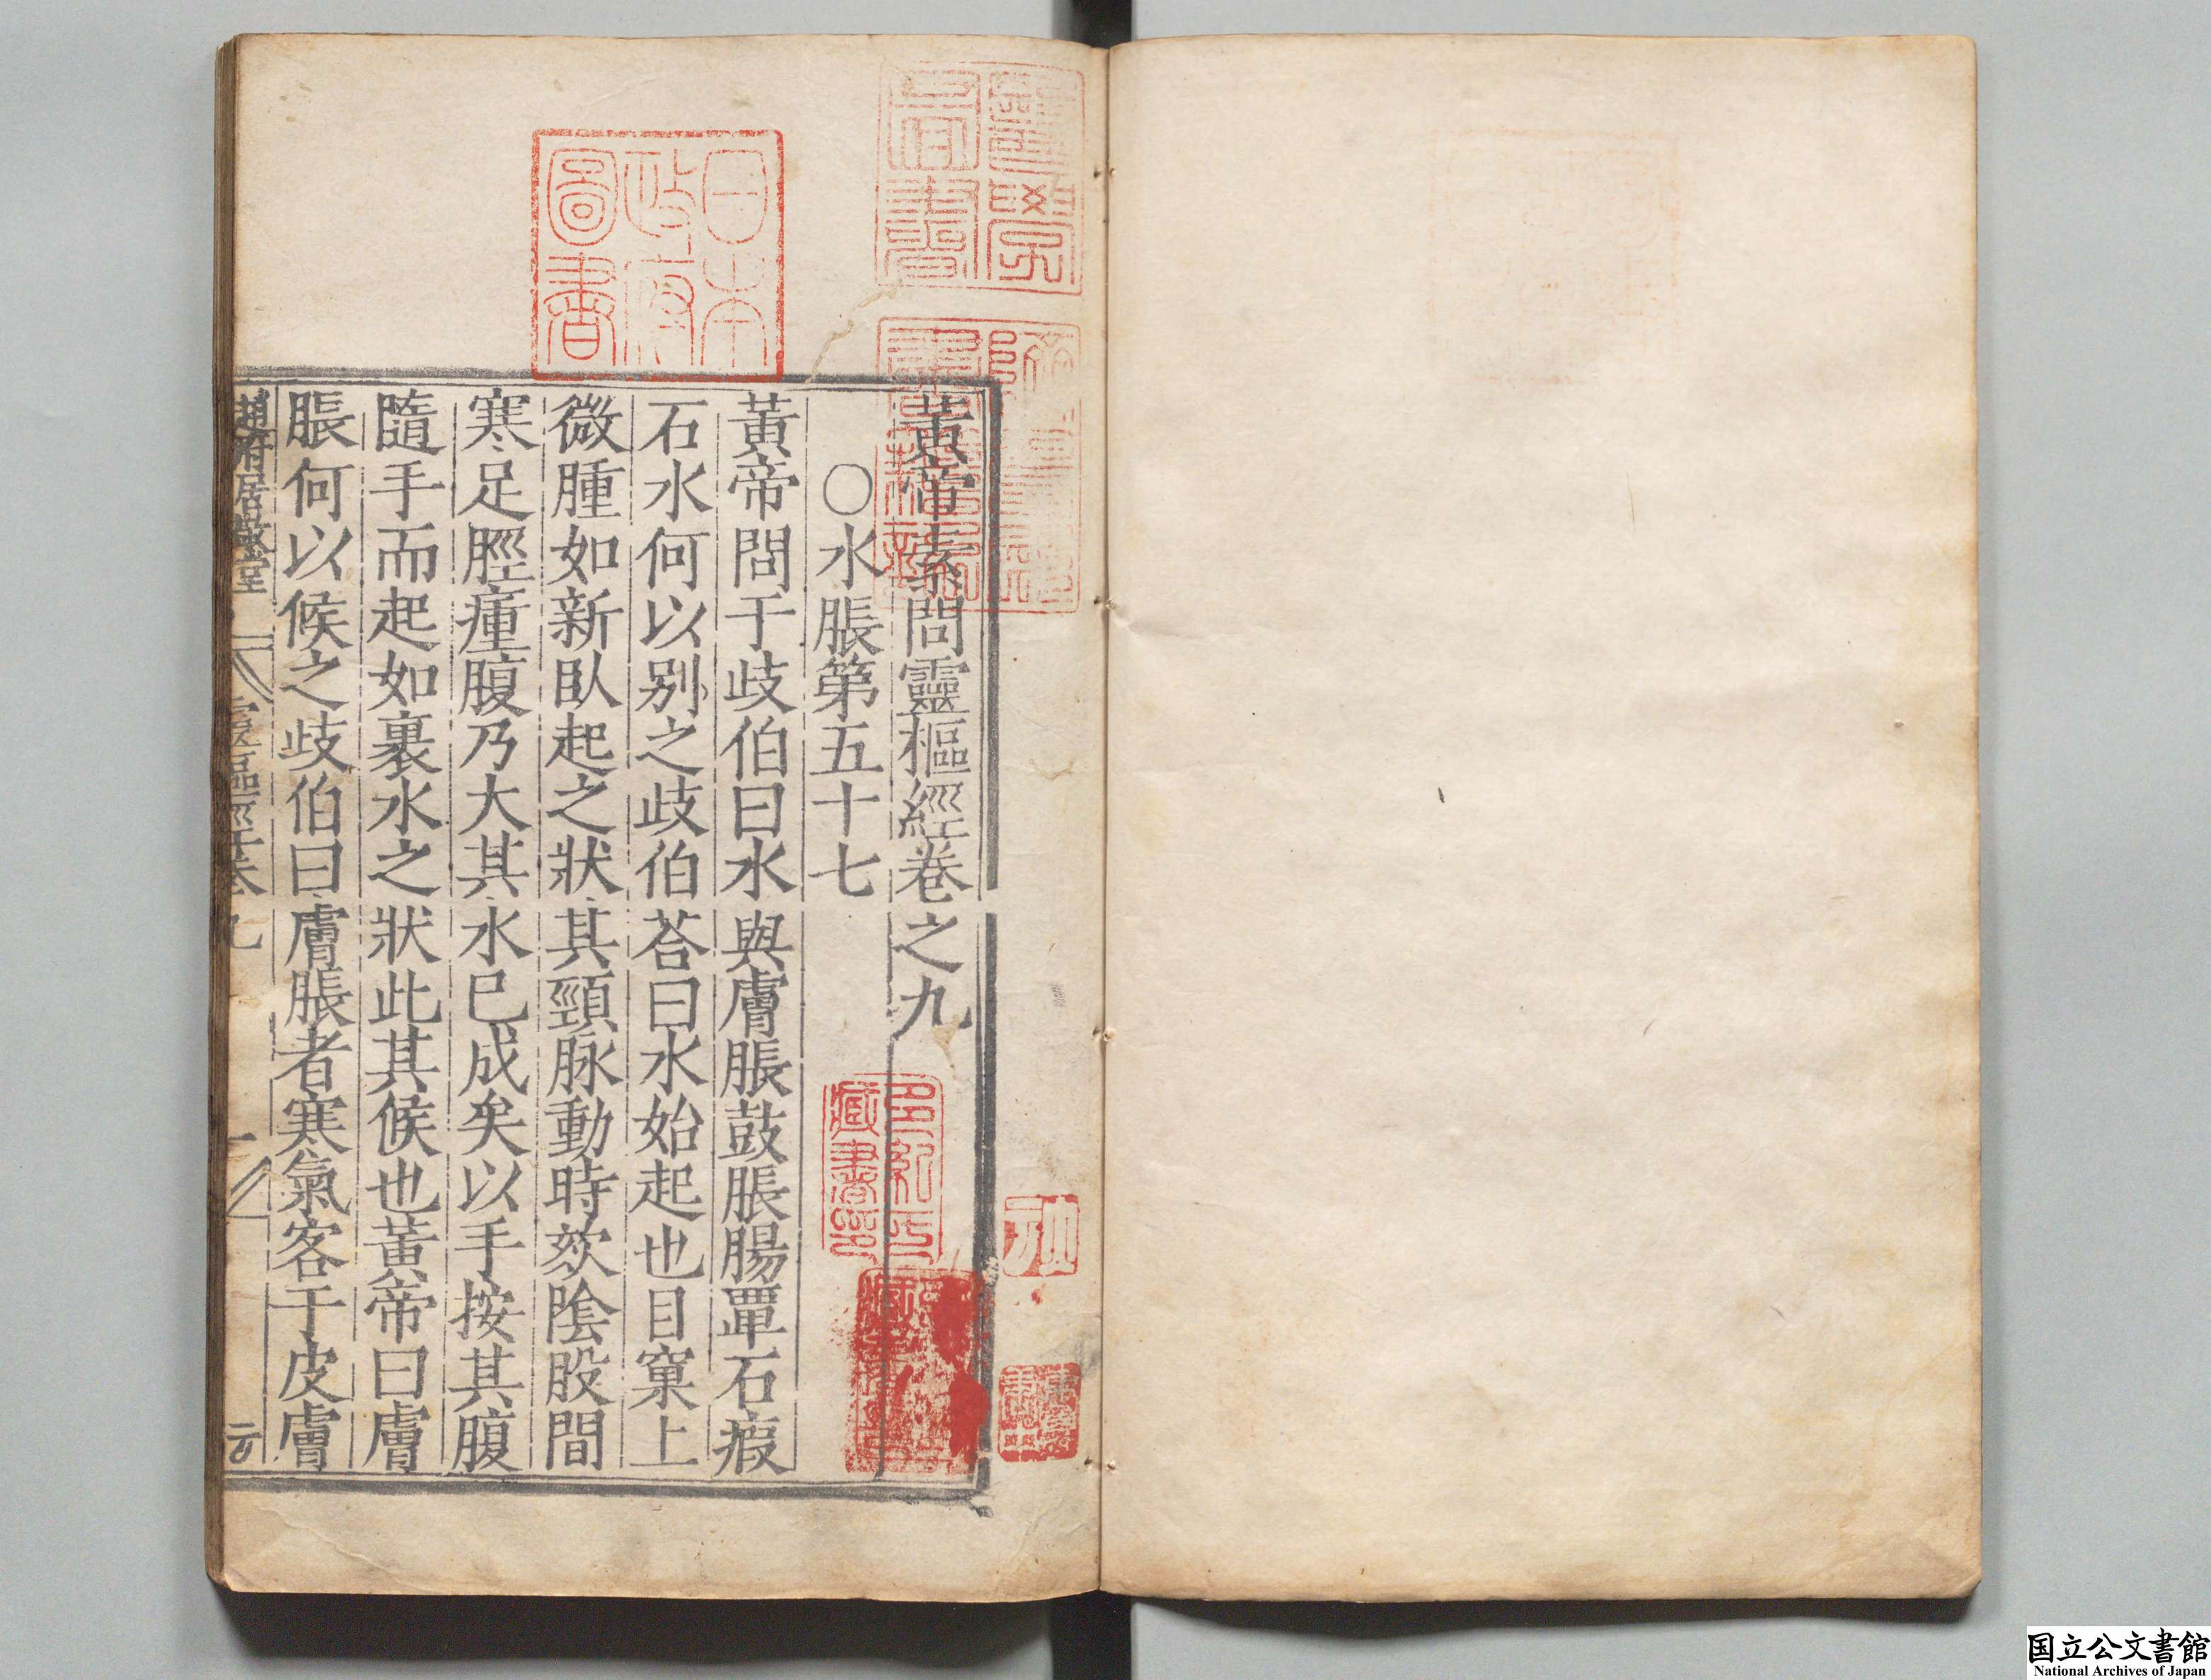 黃帝素問靈樞經卷之九
○水脹第五十七
黃帝問于歧伯曰水與膚脹鼓脹腸覃石瘕
石水何以别之歧伯荅曰水始起也目窠上
微腫如新臥起之狀其頸脉動時欬隂股間
寒足脛瘇腹乃大其水已成矣以手按其腹
隨手而起如裹水之狀此其候也黃帝曰膚
脹何以候之歧伯曰膚脹者寒氣客于皮膚
趙府居敬堂
靈樞經卷九
一
日本
政府
圖書
醫學
圖書
多紀氏
藏書印
国立公文書館
National Archives of Japan